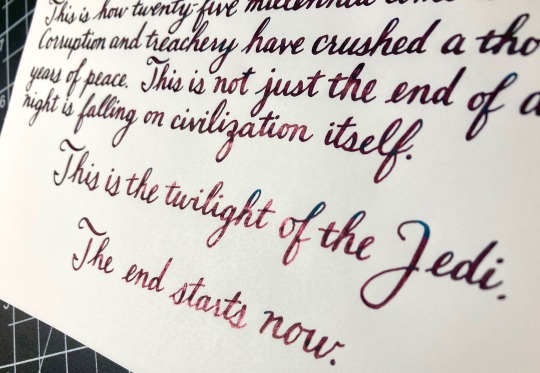 This is how twenty-five millennia
Corruption and treachery have crushed a
years of peace. This is not just the end of
night is falling on civilization itself.
This is the twilight of the Jedi.
The end starts now.